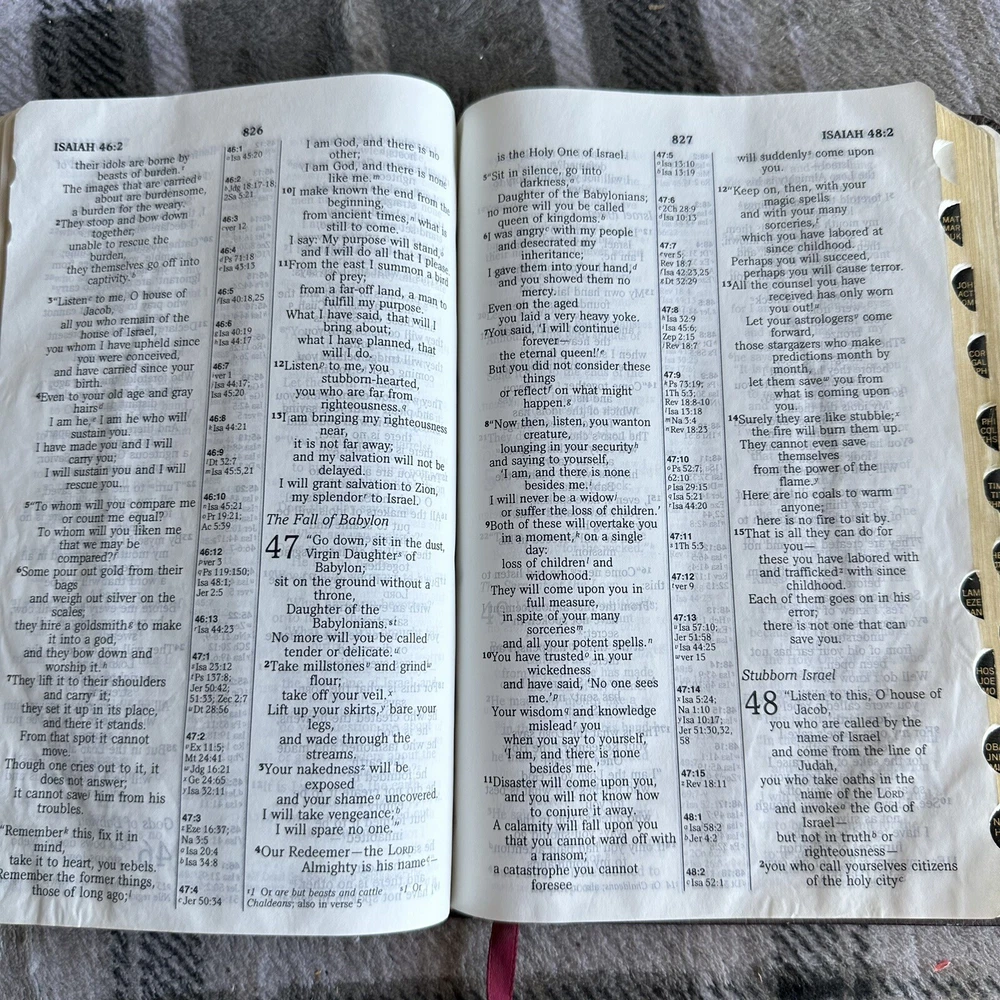 ISAIAH 46:2
826
their idols are borne by
beasts of burden.ᵃ
The images that are carriedᵇ
about are burdensome,
a burden for the weary.
²They stoop and bow down
together;
unable to rescue the
burden,
they themselves go off into
captivity.ᵇ
³"Listenᶜ to me, O house of
Jacob,
all you who remain of the
house of Israel,
you whom I have upheld since
you were conceived,
and have carried since your
birth.
⁴Even to your old age and gray
hairsᵈ
I am he,ᵉ I am he who will
sustain you.
I have made you and I will
carry you;
I will sustain you and I will
rescue you.
⁵"To whom will you compare me
or count me equal?
To whom will you liken me
that we may be
compared?ᶠ
⁶Some pour out gold from their
bags
and weigh out silver on the
scales;
they hire a goldsmithᵍ to make
it into a god,
and they bow down and
worship it.ʰ
⁷They lift it to their shoulders
and carryⁱ it;
they set it up in its place,
and there it stands.
From that spot it cannot
move.
Though one cries out to it, it
does not answer;
it cannot saveʲ him from his
troubles.
"Rememberᵏ this, fix it in
mind,
take it to heart, you rebels.
Remember the former things,
those of long ago;
46:1
Isa 45:20
46:2
Jdg 18:17-18,
2Sa 5:21
46:3
ver 12
46:4
Ps 71:18
Isa 43:13
46:5
Isa 40:18,25
46:6
Isa 40:19
Isa 44:17
46:7
ver 1
Isa 44:17;
Isa 45:20
46:8
Isa 44:21
46:9
Dt 32:7
Isa 45:5,21
46:10
Isa 45:21
Pr 19:21;
Ac 5:39
46:12
ver 3
Ps 119:150;
Isa 48:1;
Jer 2:5
46:13
Isa 44:23
47:1
Isa 23:12
Ps 137:8;
Jer 50:42;
51:33; Zec 2:7
Dt 28:56
47:2
Ex 11:5;
Mt 24:41
Jdg 16:21
Ge 24:65
Isa 32:11
47:3
Eze 16:37;
Na 3:5
Isa 20:4
Isa 34:8
47:4
Jer 50:34
I am God, and there is no
other;
I am God, and there is none
like me.ᵐ
¹⁰I make known the end from the
beginning,
from ancient times,ⁿ what is
still to come.
I say: My purpose will stand,
and I will do all that I please.
¹¹From the east I summon a bird
of prey;
from a far-off land, a man to
fulfill my purpose.
What I have said, that will I
bring about;
what I have planned, that
will I do.
¹²Listenᵖ to me, you
stubborn-hearted,
you who are far from
righteousness.
¹³I am bringing my righteousness
near,
it is not far away;
and my salvation will not be
delayed.
I will grant salvation to Zion,
my splendorʳ to Israel.
The Fall of Babylon
47 "Go down, sit in the dust,
Virgin Daughterˢ of
Babylon;
sit on the ground without a
throne,
Daughter of the
Babylonians.
No more will you be called
tender or delicate.ᵘ
²Take millstonesᵛ and grindʷ
flour;
take off your veil.ˣ
Lift up your skirts,ʸ bare your
legs,
and wade through the
streams.
³Your nakednessᶻ will be
exposed
and your shameᵃ uncovered.
I will take vengeance;ᵇ
I will spare no one."
⁴Our Redeemer—the LORD
Almighty is his nameᶜ—
1 Or are but beasts and cattle
Or
Chaldeans; also in verse 5
827
ISAIAH 48:2
is the Holy One of Israel.
⁵"Sit in silence, go into
darkness,
Daughter of the Babylonians;
no more will you be called
queen of kingdoms.ᵇ
⁶I was angryᶜ with my people
and desecrated my
inheritance;
I gave them into your hand,ᵈ
and you showed them no
mercy.
Even on the aged
you laid a very heavy yoke.
⁷You said, 'I will continue
forever—
the eternal queen!'ᵉ
But you did not consider these
things
or reflectᶠ on what might
happen.ᵍ
⁸"Now then, listen, you wanton
creature,
lounging in your securityʰ
and saying to yourself,
'I am, and there is none
besides me.ⁱ
I will never be a widowʲ
or suffer the loss of children.'
⁹Both of these will overtake you
in a moment,ᵏ on a single
day:
loss of childrenˡ and
widowhood.
They will come upon you in
full measure,
in spite of your many
sorceriesᵐ
and all your potent spells.ⁿ
¹⁰You have trustedᵒ in your
wickedness
and have said, 'No one sees
me.'ᵖ
Your wisdom and knowledge
misleadʳ you
when you say to yourself,
'I am, and there is none
besides me.'
¹¹Disaster will come upon you,
and you will not know how
to conjure it away.
A calamity will fall upon you
that you cannot ward off with
a ransom;
a catastrophe you cannot
foresee
47:5
Isa 13:10
Isa 13:19
47:6
2Ch 28:9
Isa 10:13
47:7
ver 5;
Rev 18:7
Isa 42:23,25
Dt 32:29
47:8
Isa 32:9
Isa 45:6;
Zep 2:15
Rev 18:7
47:9
Ps 73:19;
1Th 5:3;
Rev 18:8-10
Isa 13:18
Na 3:4
Rev 18:23
47:10
Ps 52:7;
62:10
Isa 29:15
Isa 5:21
Isa 44:20
47:11
1Th 5:3
47:12
ver 9
47:13
Isa 57:10;
Jer 51:58
Isa 44:25
ver 15
47:14
Isa 5:24;
Na 1:10
Isa 10:17;
Jer 51:30,32,
58
47:15
Rev 18:11
48:1
Isa 58:2
Jer 4:2
48:2
Isa 52:1
will suddenlyˢ come upon
you.
¹²"Keep on, then, with your
magic spells
and with your many
sorceries,
which you have labored at
since childhood.
Perhaps you will succeed,
perhaps you will cause terror.
¹³All the counsel you have
received has only worn
you out!
Let your astrologersᵛ come
forward,
those stargazers who make
predictions month by
month,
let them saveʷ you from
what is coming upon
you.
¹⁴Surely they are like stubble;ˣ
the fire will burn them up.
They cannot even save
themselves
from the power of the
flame.ʸ
Here are no coals to warm
anyone;
here is no fire to sit by.
¹⁵That is all they can do for
you—
these you have labored with
and traffickedᶻ with since
childhood.
Each of them goes on in his
error;
there is not one that can
save you.
Stubborn Israel
48 "Listen to this, O house of
Jacob,
you who are called by the
name of Israel
and come from the line of
Judah,
you who take oaths in the
name of the LORD
and invokeᵃ the God of
Israel—
but not in truthᵇ or
righteousness—
²you who call yourselves citizens
of the holy cityᶜ
MAT
MAR
LUK
JOH
ACT
COR
GAL
EPH
PHI
COL
THS
TIM
LAM
EZE
DAN
HOS
JOE
OBA